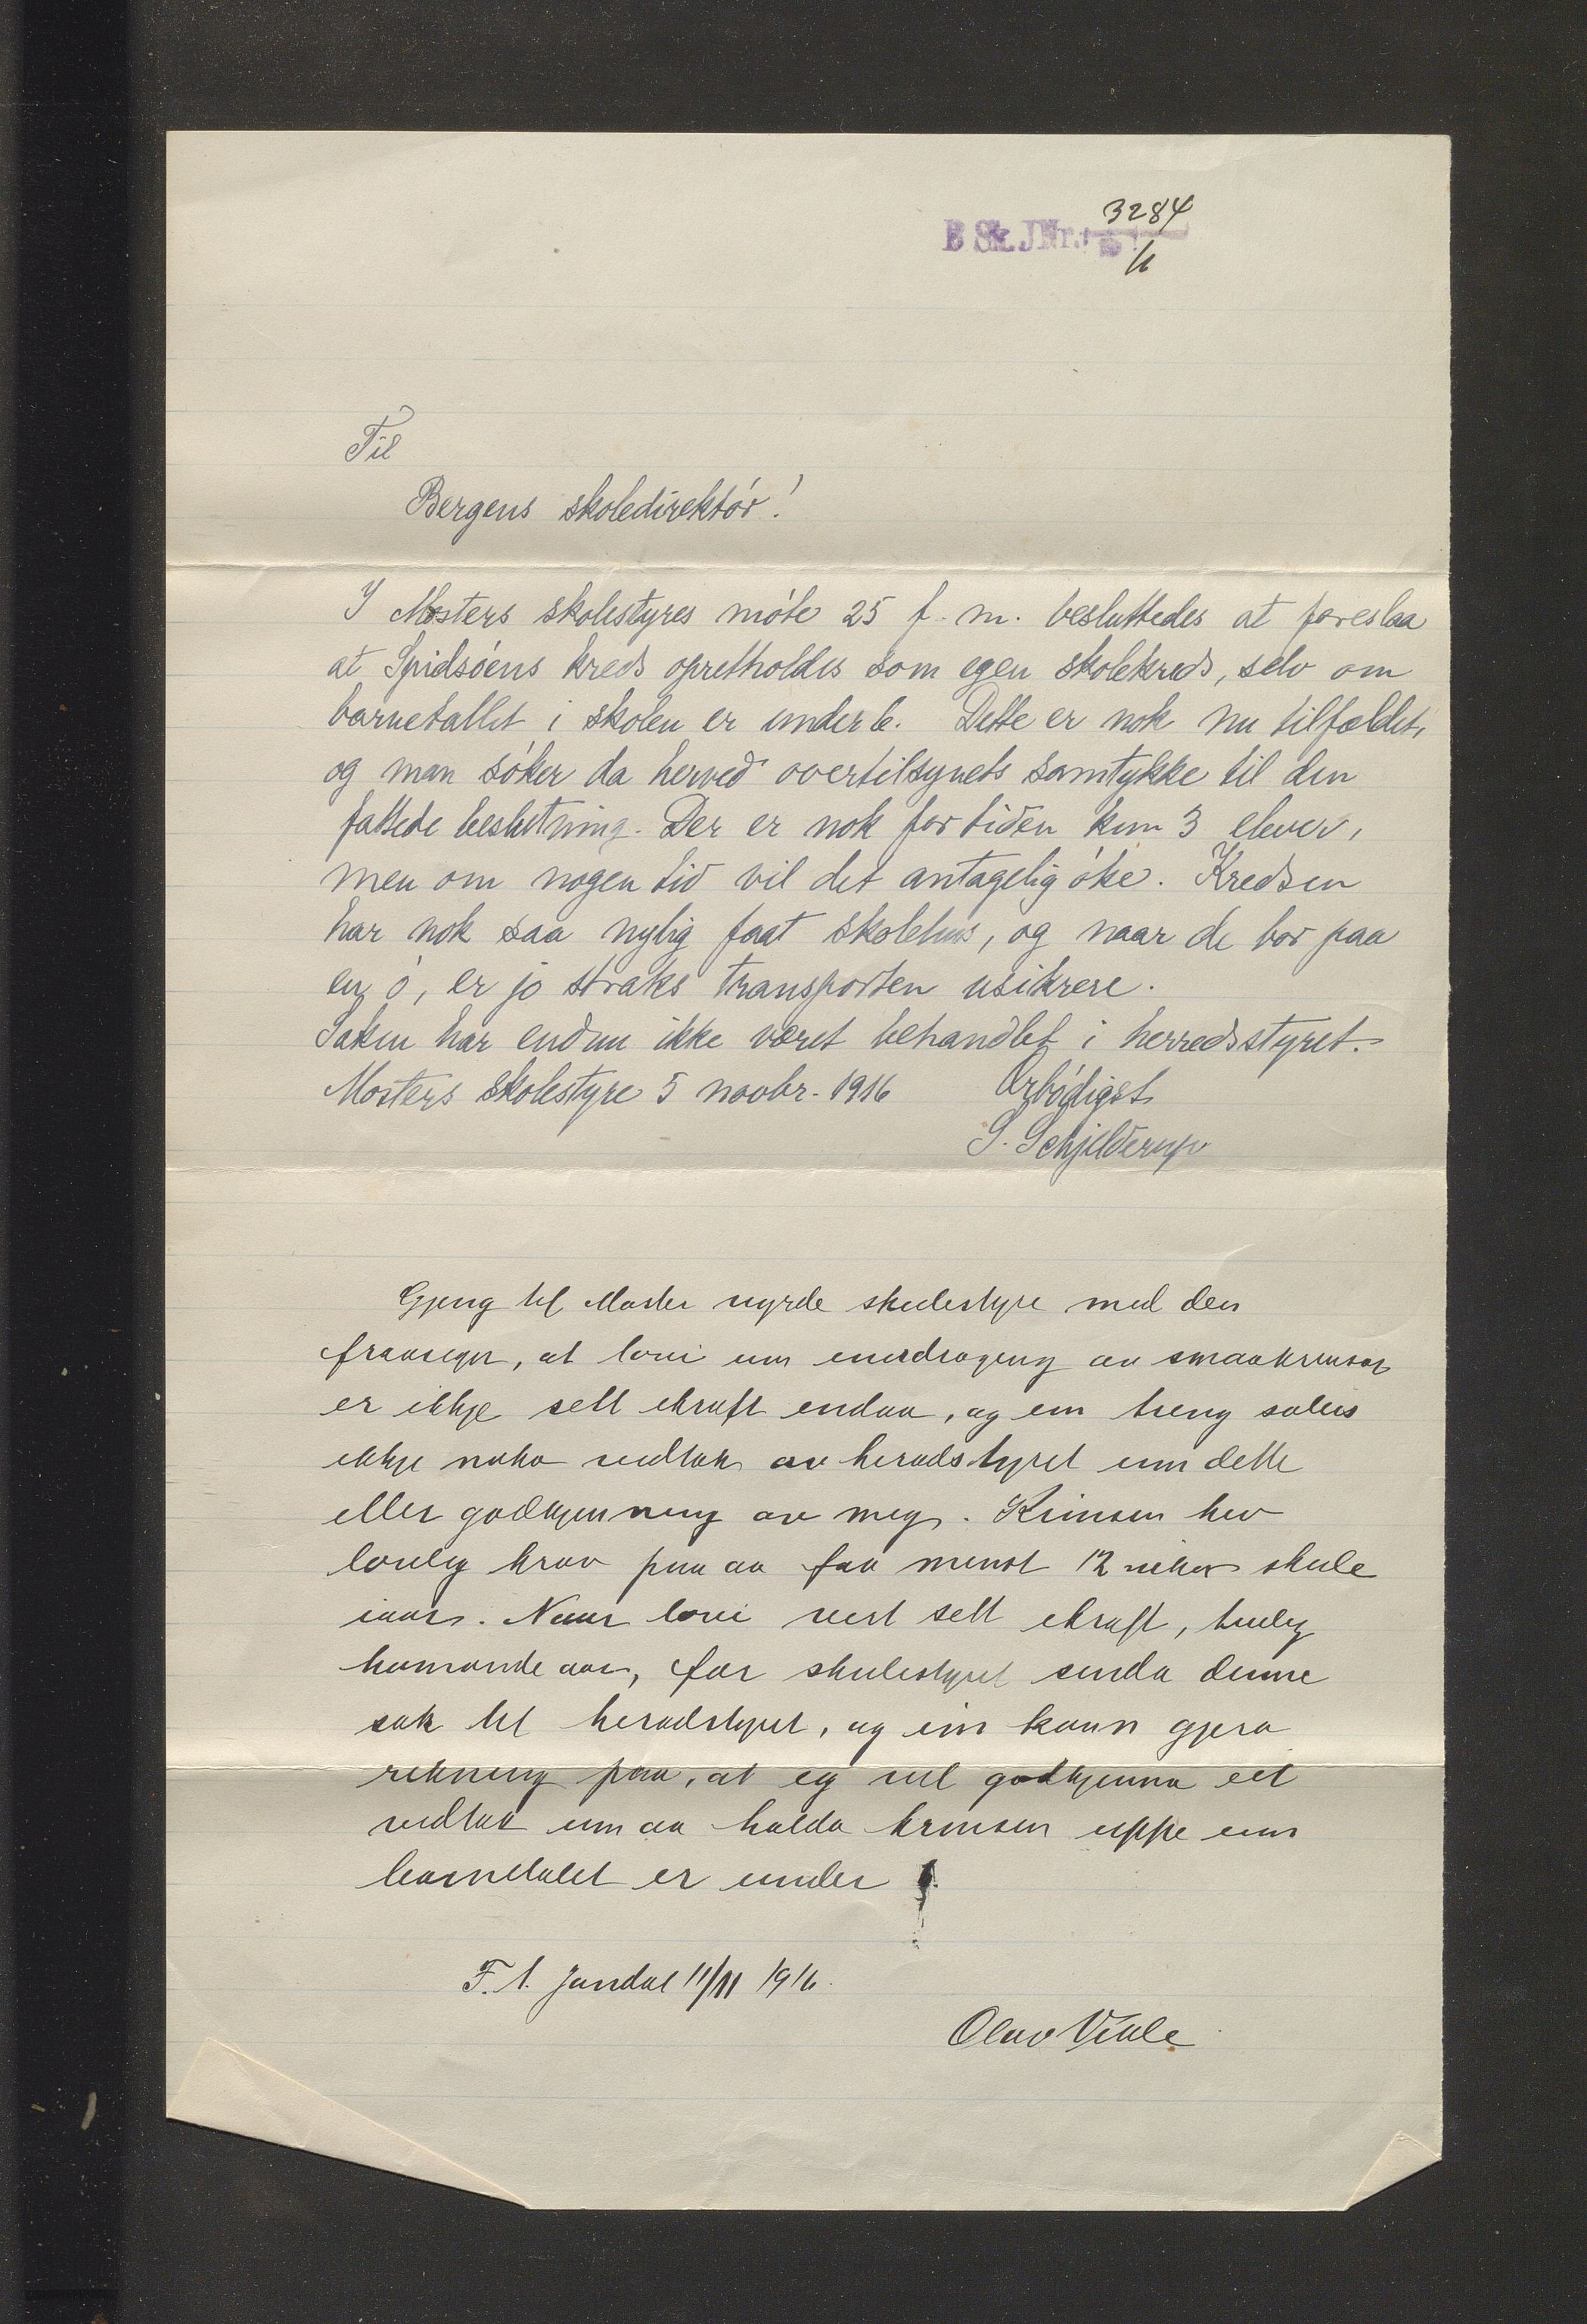 3284
B Sk. J Nr.
16
Til
Bergens skoledirektór!
I Mosters skolestyres móte 25 f. m. besluttedes at foreslaa
at Spidsóens kreds opretholdes som egen skolekreds, selv om
barnetallet i skolen er under 6. Dette er nok nu tilfældet,
og man sóker da herved overtilsynets samtykke til den
fattede beslutning. Der er nok for tiden kun 3 elever,
men om nogen tid vil det antagelig óke. Kredsen
har nok saa nylig faat skolehus, og naar de bor paa
en ó, er jo straks transporten usikrere.
Saken har endnu ikke været behandlet i herredsstyret.
Mosters skolestyre 5 novbr. 1916 Ærbódigst
S. Schjelderup
Gjeng til Moster vyrde skulestyre med den
fraasegn, at lovi um inndraging av smaakrinsar
er ikkje sett ikraft endaa, og ein treng soleis
ikkje noko vedtak av heradstyret um dette
eller godkjenning av meg. Krinsen hev
lovleg krav paa aa faa minst 12 vikor skule
iaar. Naar lovi vert sett ikraft, truleg
komande aar, fær skulestyret senda denne
sak til heradstyret, og ein kann gjera
rekning paa, at eg vil godkjenna eit
vedtak um aa halda krinsen uppe um
barnetalet er under
F. t. Jondal 11/11 1916.
Olav Vikle